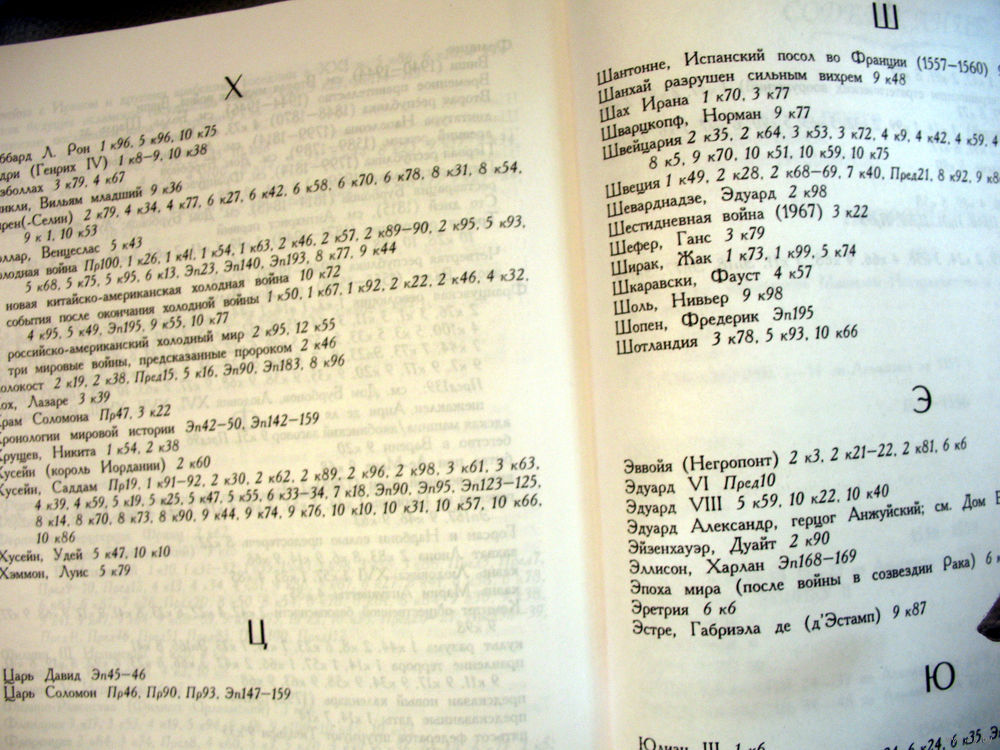 Х
ббард Л. Рон 1 к96, 5 к96, 10 к75
дри (Генрих IV) 1 к8–9, 10 к38
зболлах 3 к79, 4 к67
инкли, Вильям младший 9 к36
ирен(.-Селин) 2 к79, 4 к34, 4 к77, 6 к27, 6 к42, 6 к58, 6 к70, 6 к78, 8 к31, 8 к54,
9 к 1, 10 к53
оллар, Венцеслас 5 к43
олодная война Пр100, 1 к26, 1 к41, 1 к54, 1 к63, 2 к46, 2 к57, 2 к89–90, 2 к95, 5 к93,
5 к68, 5 к75, 5 к95, 6 к13, Эп23, Эп140, Эп193, 8 к77, 9 к44
новая китайско-американская холодная война 10 к72
события после окончания холодной войны 1 к50, 1 к67, 1 к92, 2 к22, 2 к46, 4 к32,
4 к95, 5 к49, Эп195, 9 к55, 10 к77
российско-американский холодный мир 2 к95, 12 к55
три мировые войны, предсказанные пророком 2 к46
олокост 2 к19, 2 к38, Пред15, 5 к16, Эп90, Эп183, 8 к96
ох, Лазаре 3 к39
рам Соломона Пр47, 3 к22
Хронологии мировой истории Эп42–50, Эп142–159
Хрущев, Никита 1 к54, 2 к38
Хусейн (король Иордании) 2 к60
Хусейн, Саддам Пр19, 1 к91–92, 2 к30, 2 к62, 2 к89, 2 к96, 2 к98, 3 к61, 3 к63,
4 к39, 4 к59, 5 к19, 5 к25, 5 к47, 5 к55, 6 к33–34, 7 к18, Эп90, Эп95, Эп123–125,
8 к14, 8 к70, 8 к73, 8 к90, 9 к44, 9 к74, 9 к76, 10 к10, 10 к31, 10 к57, 10 к66,
10 к86
Хусейн, Удей 5 к47, 10 к10
Хэммон, Луис 5 к79
Ц
Царь Давид Эп45–46
Царь Соломон Пр46, Пр90, Пр93, Эп147–159
Ш
Шантонне, Испанский посол во Франции (1557–1560)
Шанхай разрушен сильным вихрем 9 к48
Шах Ирана 1 к70, 3 к77
Шварцкопф, Норман 9 к77
Швейцария 2 к35, 2 к64, 3 к53, 3 к72, 4 к9, 4 к42, 4 к59, 4
8 к5, 9 к70, 10 к51, 10 к59, 10 к75
Швеция 1 к49, 2 к28, 2 к68–69, 7 к40, Пред21, 8 к92, 9 к8
Шеварднадзе, Эдуард 2 к98
Шестидневная война (1967) 3 к22
Шефер, Ганс 3 к79
Ширак, Жак 1 к73, 1 к99, 5 к74
Шкаравски, Фауст 4 к57
Шоль, Нивьер 9 к98
Шопен, Фредерик Эп195
Шотландия 3 к78, 5 к93, 10 к66
Э
Эввойя (Негропонт) 2 к3, 2 к21–22, 2 к81, 6 к6
Эдуард VI Пред10
Эдуард VIII 5 к59, 10 к22, 10 к40
Эдуард Александр, герцог Анжуйский; см. Дом В
Эйзенхауэр, Дуайт 2 к90
Эллисон, Харлан Эп168–169
Эпоха мира (после войны в созвездии Рака) 6 к
Эретрия 6 к6
Эстре, Габриэла де (д'Эстамп) 9 к87
Ю
Юлиан III 1 к6
к24, 6 к24, 6 к35, Э